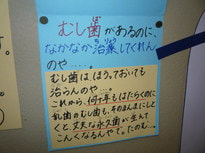 むし歯があるのに、
なかなか治療してくれん
のや……。
むし歯は、ほうっておいても
治らんのや……。
これから、何十年もはたらくのに
乳歯のむし歯も、そのままにして
くと、丈夫な永久歯が生えて
こんくなるんやて。たのむ…。